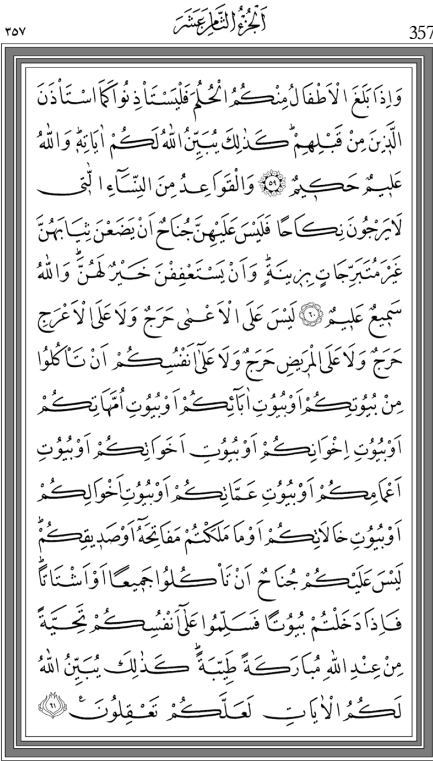 ٣٥٧ اَلْجُزْءُ الثَّامِنَ عَشَرَ 357
وَاِذَا بَلَغَ الْاَطْفَالُ مِنْكُمُ الْحُلُمَ فَلْيَسْتَأْذِنُوا كَمَا اسْتَأْذَنَ
الَّذٖينَ مِنْ قَبْلِهِمْؕ كَذٰلِكَ يُبَيِّنُ اللّٰهُ لَكُمْ اٰيَاتِهٖؕ وَاللّٰهُ
عَلٖيمٌ حَكٖيمٌ ﴿٥٩﴾ وَالْقَوَاعِدُ مِنَ النِّسَٓاءِ الّٰتٖي
لَا يَرْجُونَ نِكَاحًا فَلَيْسَ عَلَيْهِنَّ جُنَاحٌ اَنْ يَضَعْنَ ثِيَابَهُنَّ
غَيْرَ مُتَبَرِّجَاتٍ بِزٖينَةٍؕ وَاَنْ يَسْتَعْفِفْنَ خَيْرٌ لَهُنَّؕ وَاللّٰهُ
سَمٖيعٌ عَلٖيمٌ ﴿٦٠﴾ لَيْسَ عَلَى الْاَعْمٰى حَرَجٌ وَلَا عَلَى الْاَعْرَجِ
حَرَجٌ وَلَا عَلَى الْمَرٖيضِ حَرَجٌ وَلَا عَلٰٓى اَنْفُسِكُمْ اَنْ تَأْكُلُوا
مِنْ بُيُوتِكُمْ اَوْ بُيُوتِ اٰبَٓائِكُمْ اَوْ بُيُوتِ اُمَّهَاتِكُمْ
اَوْ بُيُوتِ اِخْوَانِكُمْ اَوْ بُيُوتِ اَخَوَاتِكُمْ اَوْ بُيُوتِ
اَعْمَامِكُمْ اَوْ بُيُوتِ عَمَّاتِكُمْ اَوْ بُيُوتِ اَخْوَالِكُمْ
اَوْ بُيُوتِ خَالَاتِكُمْ اَوْ مَا مَلَكْتُمْ مَفَاتِحَهُٓ اَوْ صَدٖيقِكُمْؕ
لَيْسَ عَلَيْكُمْ جُنَاحٌ اَنْ تَأْكُلُوا جَمٖيعًا اَوْ اَشْتَاتًاؕ
فَاِذَا دَخَلْتُمْ بُيُوتًا فَسَلِّمُوا عَلٰٓى اَنْفُسِكُمْ تَحِيَّةً
مِنْ عِنْدِ اللّٰهِ مُبَارَكَةً طَيِّبَةًؕ كَذٰلِكَ يُبَيِّنُ اللّٰهُ
لَكُمُ الْاٰيَاتِ لَعَلَّكُمْ تَعْقِلُونَ ࣖ ﴿٦١﴾